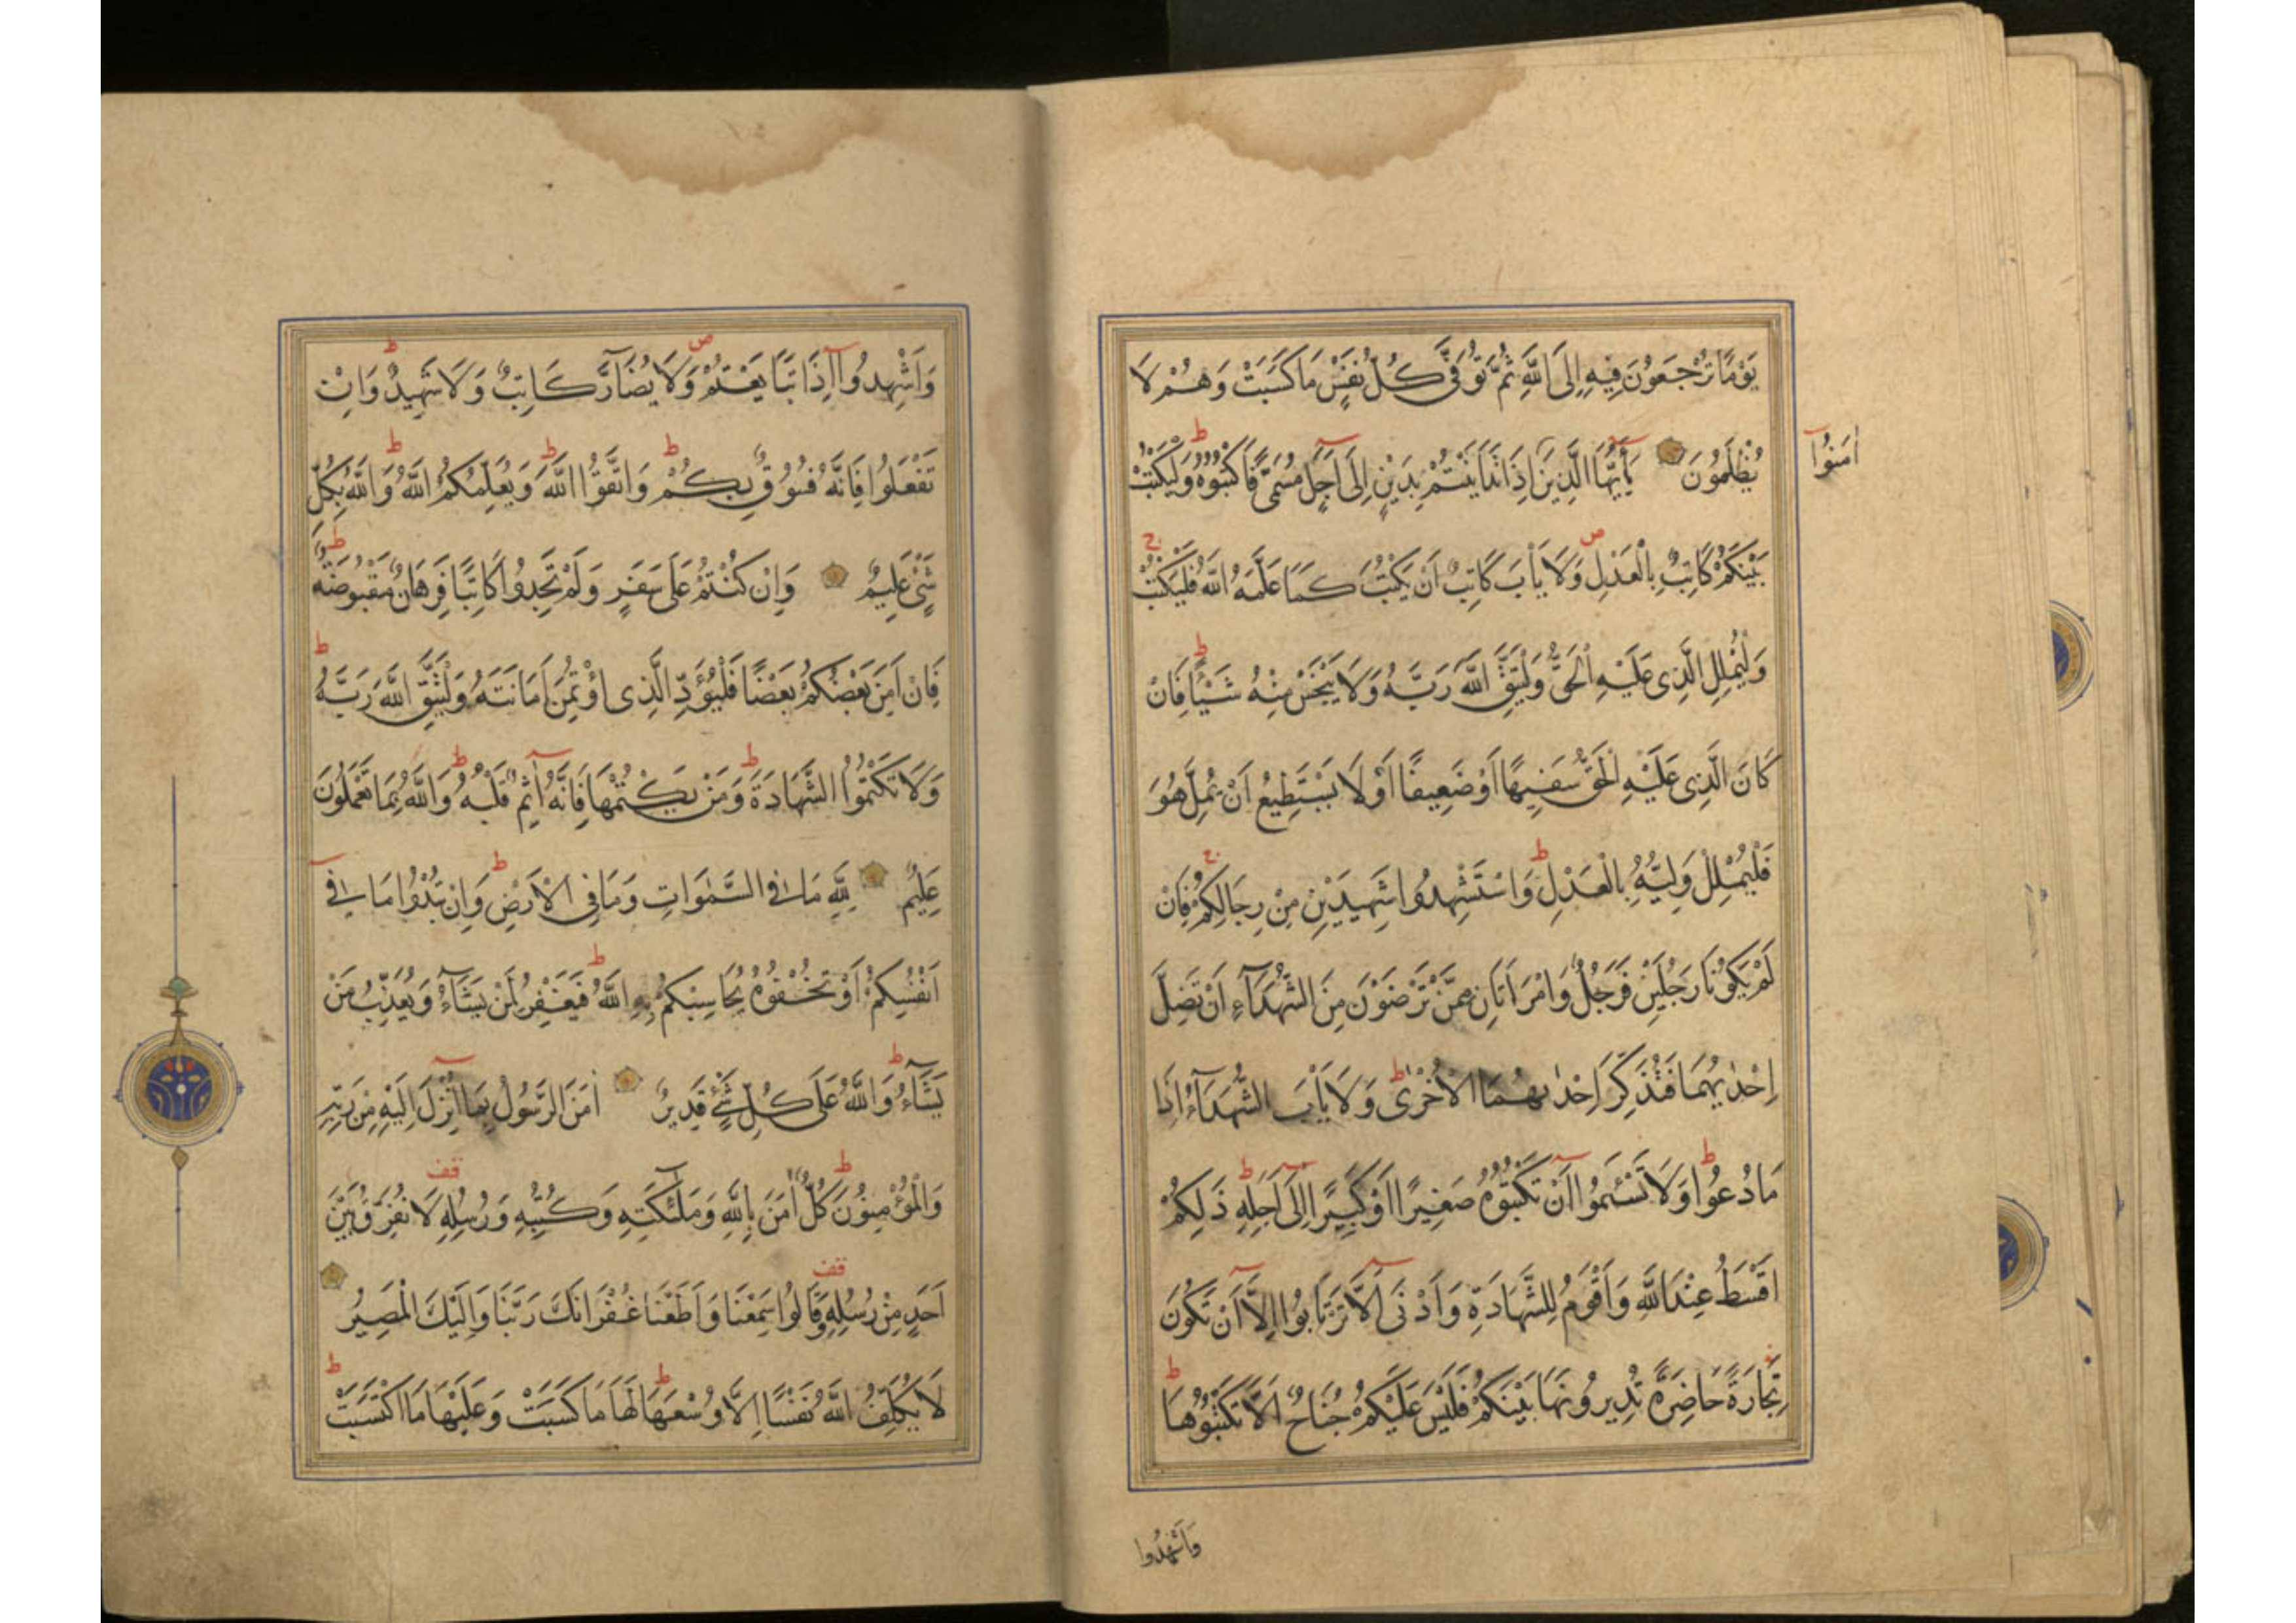 يَوْمًا تُرْجَعُوْنَ فِيْهِ اِلَى اللّٰهِ ثُمَّ تُوَفّٰى كُلُّ نَفْسٍ مَا كَسَبَتْ وَهُمْ لَا
يُظْلَمُوْنَ يَاَيُّهَا الَّذِيْنَ اِذَا تَدَايَنْتُمْ بِدَيْنٍ اِلٰى اَجَلٍ مُسَمًّى فَاكْتُبُوْهُ وَلْيَكْتُبْ
اٰمَنُوْا
بَيْنَكُمْ كَاتِبٌ بِالْعَدْلِ وَلَا يَاْبَ كَاتِبٌ اَنْ يَكْتُبَ كَمَا عَلَّمَهُ اللّٰهُ فَلْيَكْتُبْ
وَلْيُمْلِلِ الَّذِى عَلَيْهِ الْحَقُّ وَلْيَتَّقِ اللّٰهَ رَبَّهُ وَلَا يَبْخَسْ مِنْهُ شَيْئًا فَاِنْ
كَانَ الَّذِى عَلَيْهِ الْحَقُّ سَفِيْهًا اَوْ ضَعِيْفًا اَوْ لَا يَسْتَطِيْعُ اَنْ يُمِلَّ هُوَ
فَلْيُمْلِلْ وَلِيُّهُ بِالْعَدْلِ وَاسْتَشْهِدُوْا شَهِيْدَيْنِ مِنْ رِجَالِكُمْ فَاِنْ
لَمْ يَكُوْنَا رَجُلَيْنِ فَرَجُلٌ وَامْرَاَتَانِ مِمَّنْ تَرْضَوْنَ مِنَ الشُّهَدَآءِ اَنْ تَضِلَّ
اِحْدٰيهُمَا فَتُذَكِّرَ اِحْدٰيهُمَا الْاُخْرٰى وَلَا يَاْبَ الشُّهَدَآءُ اِذَا
مَا دُعُوْا وَلَا تَسْئَمُوْا اَنْ تَكْتُبُوْهُ صَغِيْرًا اَوْ كَبِيْرًا اِلٰى اَجَلِهِ ذٰلِكُمْ
اَقْسَطُ عِنْدَ اللّٰهِ وَاَقْوَمُ لِلشَّهَادَةِ وَاَدْنٰى اَلَّا تَرْتَابُوْا اِلَّا اَنْ تَكُوْنَ
تِجَارَةً حَاضِرَةً تُدِيْرُوْنَهَا بَيْنَكُمْ فَلَيْسَ عَلَيْكُمْ جُنَاحٌ اَلَّا تَكْتُبُوْهَا
وَاَشْهِدُوْا
وَاَشْهِدُوْا اِذَا تَبَايَعْتُمْ وَلَا يُضَآرَّ كَاتِبٌ وَلَا شَهِيْدٌ وَاِنْ
تَفْعَلُوْا فَاِنَّهُ فُسُوْقٌ بِكُمْ وَاتَّقُوا اللّٰهَ وَيُعَلِّمُكُمُ اللّٰهُ وَاللّٰهُ بِكُلِّ
شَىْءٍ عَلِيْمٌ وَاِنْ كُنْتُمْ عَلٰى سَفَرٍ وَلَمْ تَجِدُوْا كَاتِبًا فَرِهَانٌ مَقْبُوْضَةٌ
فَاِنْ اَمِنَ بَعْضُكُمْ بَعْضًا فَلْيُؤَدِّ الَّذِى اؤْتُمِنَ اَمَانَتَهُ وَلْيَتَّقِ اللّٰهَ رَبَّهُ
وَلَا تَكْتُمُوا الشَّهَادَةَ وَمَنْ يَكْتُمْهَا فَاِنَّهُ اٰثِمٌ قَلْبُهُ وَاللّٰهُ بِمَا تَعْمَلُوْنَ
عَلِيْمٌ لِلّٰهِ مَا فِى السَّمٰوَاتِ وَمَا فِى الْاَرْضِ وَاِنْ تُبْدُوْا مَا فِى
اَنْفُسِكُمْ اَوْ تُخْفُوْهُ يُحَاسِبْكُمْ بِهِ اللّٰهُ فَيَغْفِرُ لِمَنْ يَشَآءُ وَيُعَذِّبُ مَنْ
يَشَآءُ وَاللّٰهُ عَلٰى كُلِّ شَىْءٍ قَدِيْرٌ اٰمَنَ الرَّسُوْلُ بِمَا اُنْزِلَ اِلَيْهِ مِنْ رَبِّهِ
وَالْمُؤْمِنُوْنَ كُلٌّ اٰمَنَ بِاللّٰهِ وَمَلٰٓئِكَتِهِ وَكُتُبِهِ وَرُسُلِهِ لَا نُفَرِّقُ بَيْنَ
اَحَدٍ مِنْ رُسُلِهِ وَقَالُوْا سَمِعْنَا وَاَطَعْنَا غُفْرَانَكَ رَبَّنَا وَاِلَيْكَ الْمَصِيْرُ
لَا يُكَلِّفُ اللّٰهُ نَفْسًا اِلَّا وُسْعَهَا لَهَا مَا كَسَبَتْ وَعَلَيْهَا مَا اكْتَسَبَتْ